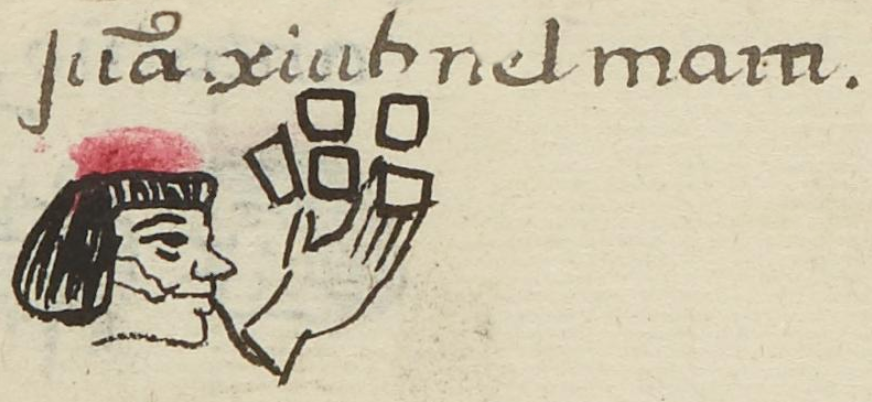 juā. xiuhnelmani.